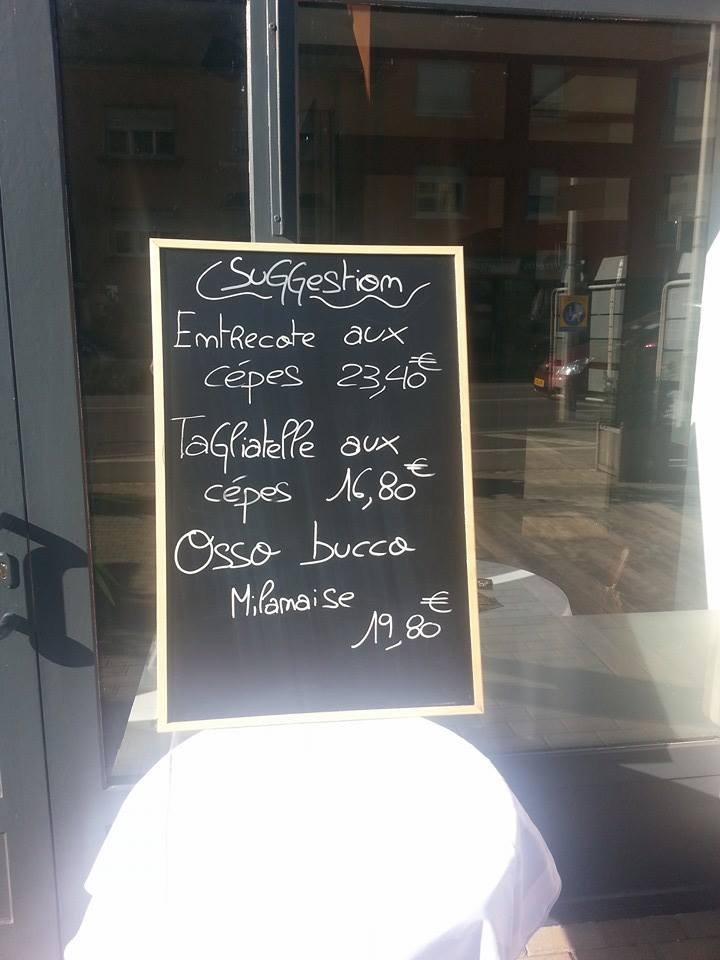 Suggestion
Entrecote aux
cépes 23,40€
Tagliatelle aux
cépes 16,80€
Osso bucco
Milanaise
19,80€